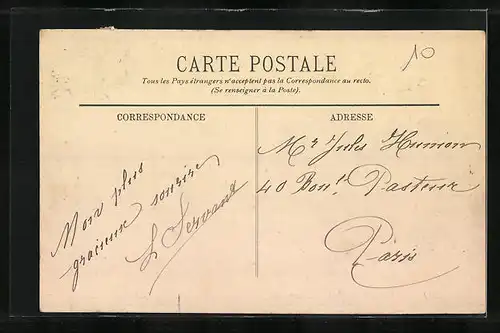 10
CARTE POSTALE
Tous les Pays étrangers n'acceptent pas la Correspondance au recto.
(Se renseigner à la Poste).
CORRESPONDANCE
ADRESSE
Mon plus
gracieux sourire
L Servant
Mr Jules Humon
40 Boul.d Pasteur
Paris